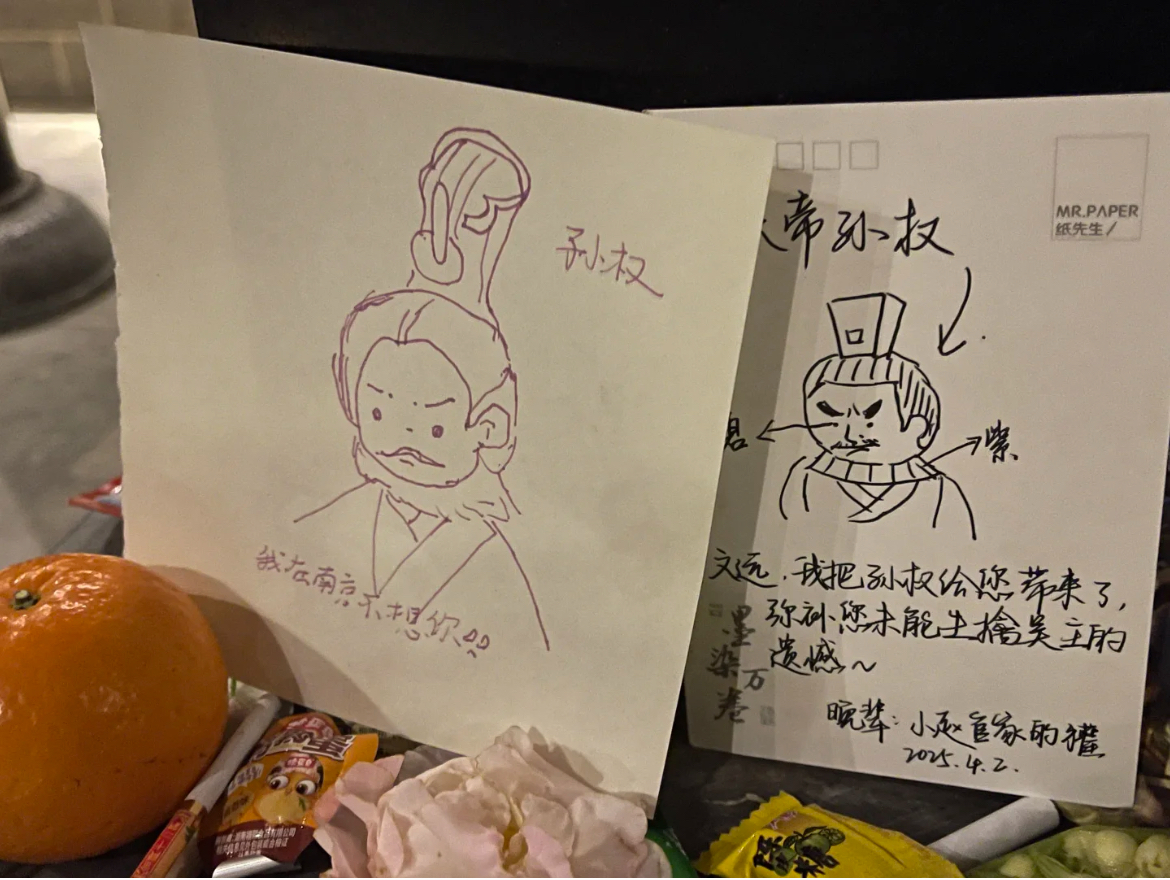 孙权
我在南京不想你
MR.PAPER
纸先生/
大帝孙权
碧
紫
文远，我把孙权给您带来了，
弥补您未能生擒吴主的
遗憾～
墨染万卷
晚辈：小赵官家的獾
2025.4.2.